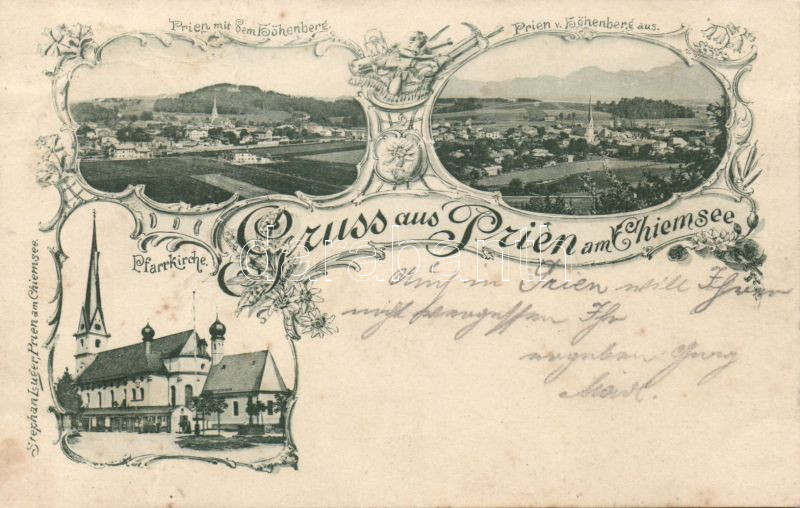 Prien mit dem Höhenberg.
Prien v. Höhenberg aus.
Gruss aus Prien am Chiemsee
Pfarrkirche.
Stephan Luger, Prien am Chiemsee.
Auch in Prien will Ihnen
nicht vergessen Ihr
ergeben Georg